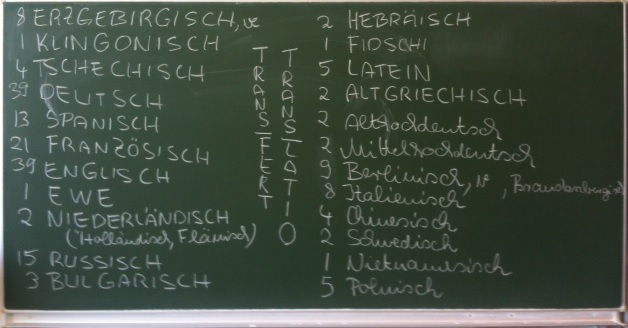 8 ERZGEBIRGISCH,
1 KLINGONISCH
4 TSCHECHISCH
39 DEUTSCH
13 SPANISCH
21 FRANZÖSISCH
39 ENGLISCH
1 EWE
2 NIEDERLÄNDISCH
(Holländisch, Flämisch)
15 RUSSISCH
3 BULGARISCH
TRANSFERT
TRANSLATIO
2 HEBRÄISCH
1 FIDSCHI
5 LATEIN
2 ALTGRIECHISCH
2 Althochdeutsch
2 Mittelhochdeutsch
9 Berlinisch, Brandenburgisch
8 Italienisch
4 Chinesisch
2 Schwedisch
1 Vietnamesisch
5 Polnisch